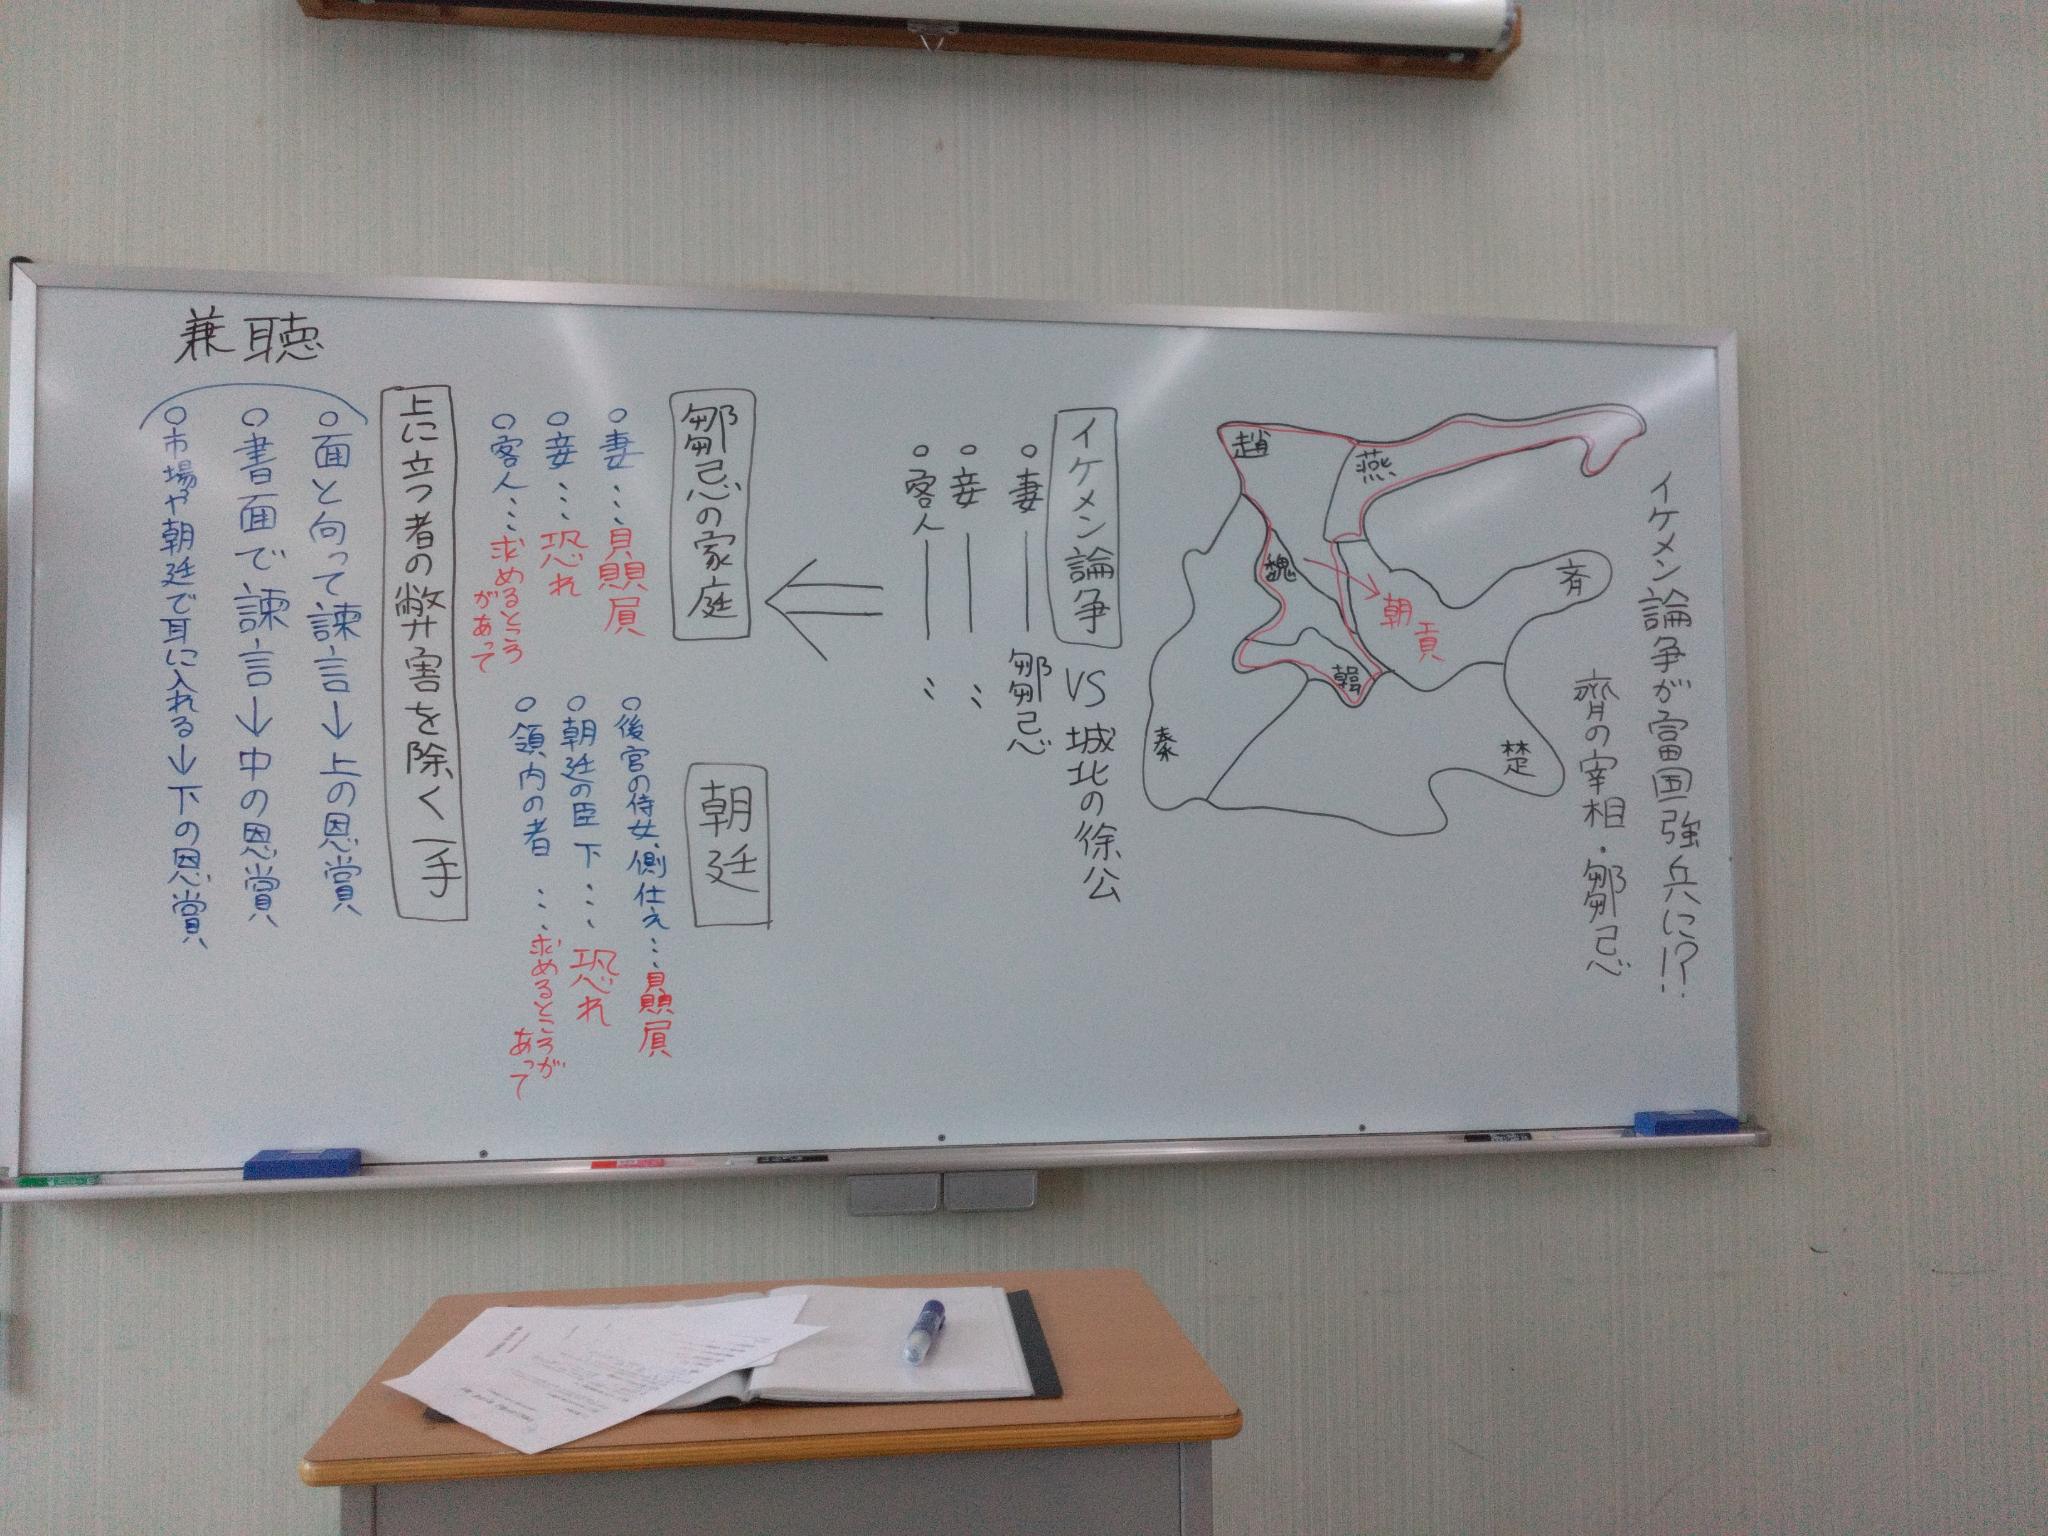 イケメン論争が富国強兵に!?
斉の宰相・鄒忌
趙
燕
斉
魏
朝貢
韓
秦
楚
イケメン論争 VS 城北の徐公
○妻――鄒忌
○妾――〃
○客人――〃
鄒忌の家庭
○妻…贔屓
○妾…恐れ
○客人…求めるところ
があって
朝廷
○後宮の侍女、側仕え…贔屓
○朝廷の臣下…恐れ
○領内の者…求めるところが
あって
上に立つ者の弊害を除く一手
兼聴
○面と向って諫言→上の恩賞
○書面で諫言→中の恩賞
○市場や朝廷で耳に入れる→下の恩賞